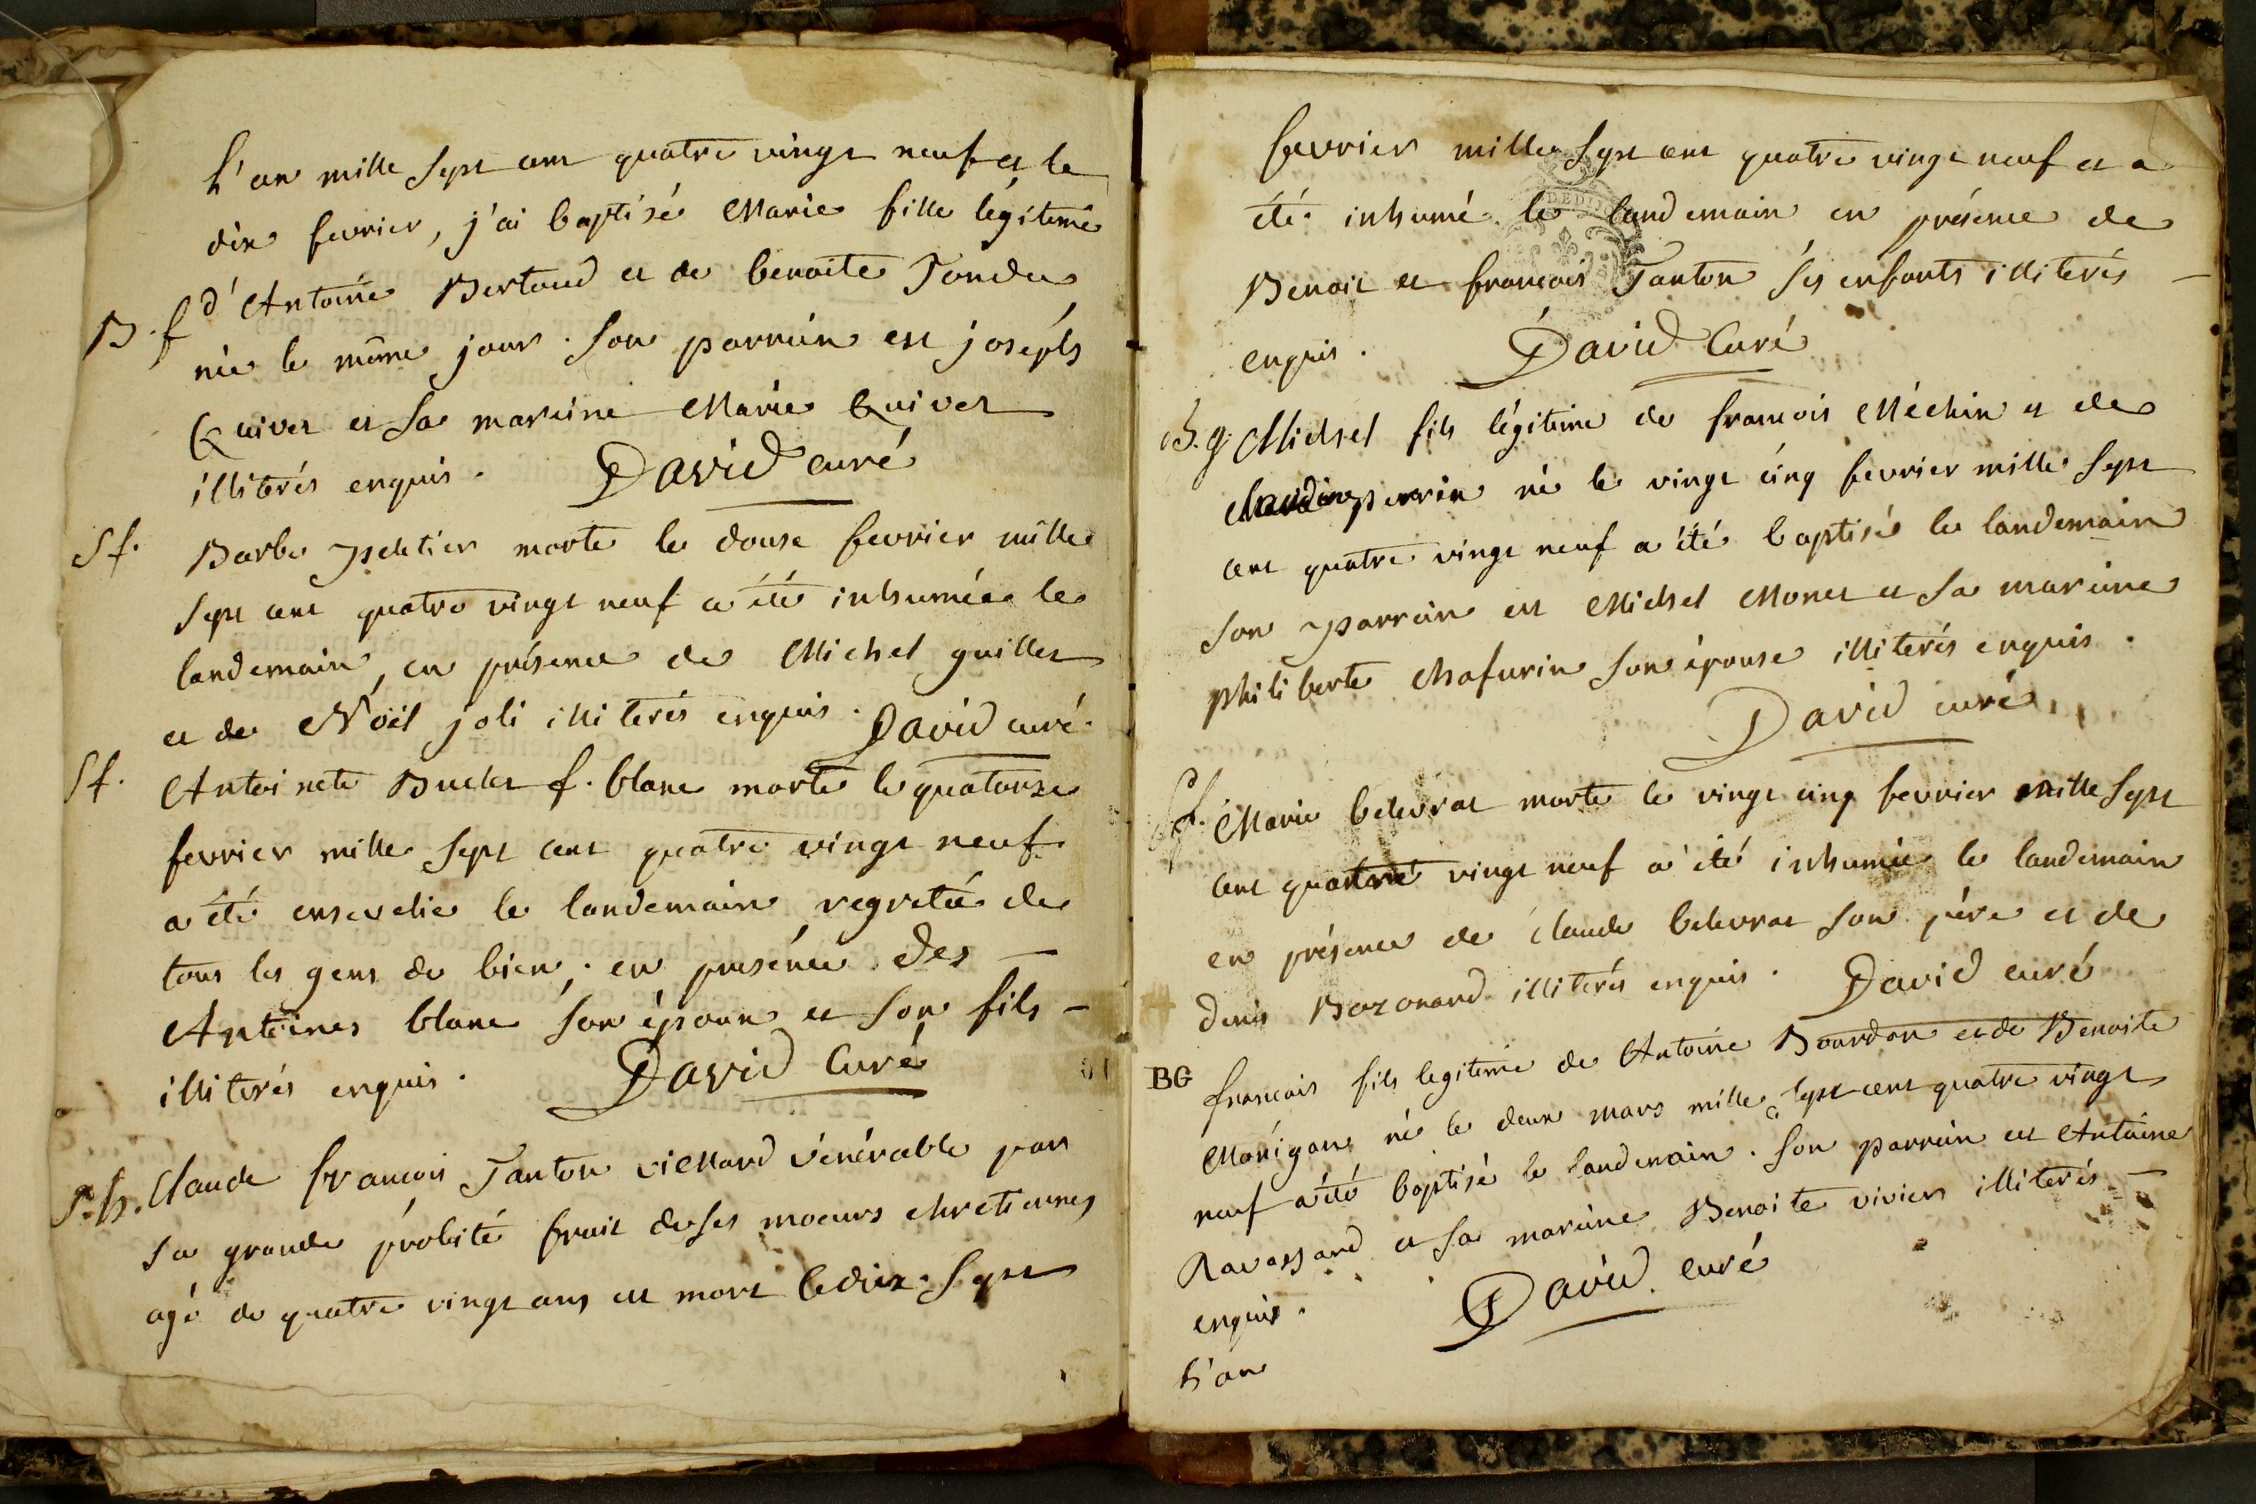 L'an mille sept cent quatre vingt neuf et le
dix fevrier, j'ai baptisé Marie fille légitime
B. f d'Antoine Bertoud et de benoite Tondu
née le même jour. Son parrain est joséph
Quivet et Sa maraine Marie Quivet
illiterés enquis. David curé
S f. Barbe peletier morte le douse fevrier mille
Sept cent quatre vingt neuf a été inhumée le
landemain, en présence de Michel guillet
et de Noël joli illiterés enquis. David curé.
S f. Antoinete Buclet f. blanc morte le quatorze
fevrier mille Sept cent quatre vingt neuf
a été ensevelie le landemain regretée de
tous les gens de bien; en présence des
Antoines blanc Son époux et Son fils -
illiterés enquis. David Curé
S. h. Claude francois Tanton viellard vénérable par
Sa grande próbité fruit de Ses moeurs chretiennes
agé de quatre vingt ans est mort le dix. Sept
fevrier mille Sept cent quatre vingt neuf et a
été inhumé le landemain en présence de
Benoit et francois Tanton Ses enfants illiterés -
enquis. David Curé
B. g. Michel fils légitime de francois Méchin et de
claudine perrin né le vingt cinq fevrier mille Sept
cent quatre vingt neuf a été baptisé le landemain
Son parrain est Michel Monet et Sa maraine
philiberte Chafurin Son épouse illiterés enquis.
David curé
S f. Marie belevrat morte le vingt cinq fevrier mille Sept
cent quatre vingt neuf a été inhumée le landemain
en présence de Claude belevrat Son père et de
denis Bozonard illiterés enquis. David curé
BG francois fils legitime de Antoine Bourdon et de Benoite
Monigan né le deux mars mille Sept cent quatre vingt
neuf a été baptisé le landemain. Son parrain est Antoine
Ravassard et Sa maraine Benoite vivier illiterés -
enquis. David. curé
L'an